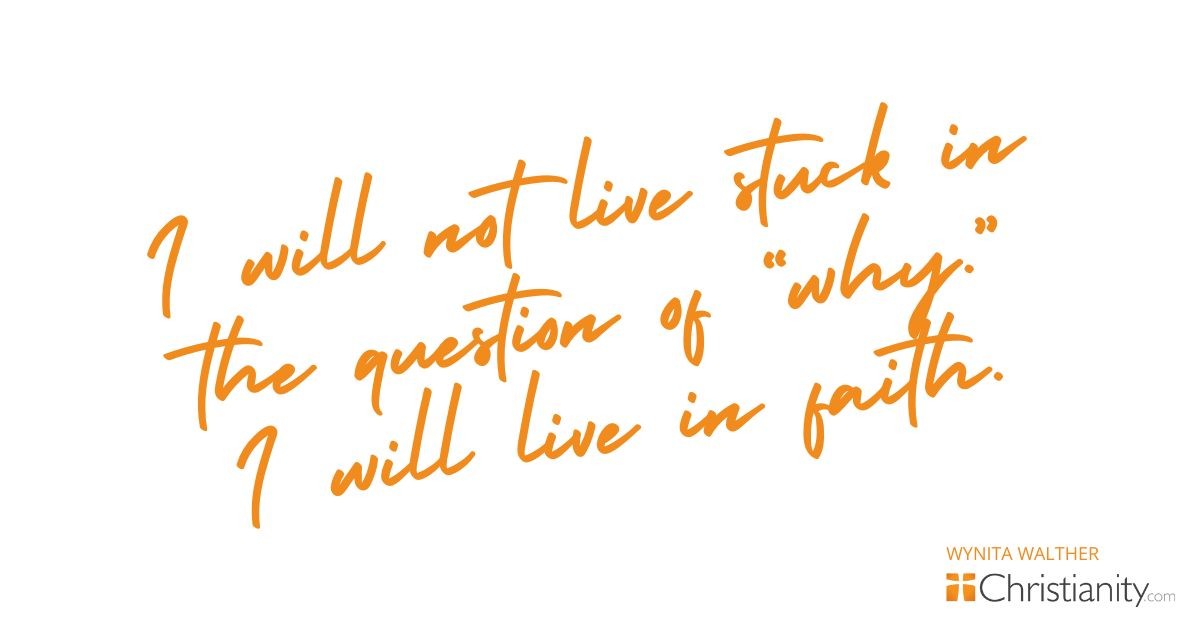 I will not live stuck in
the question of “why.”
I will live in faith.
WYNITA WALTHER
Christianity.com